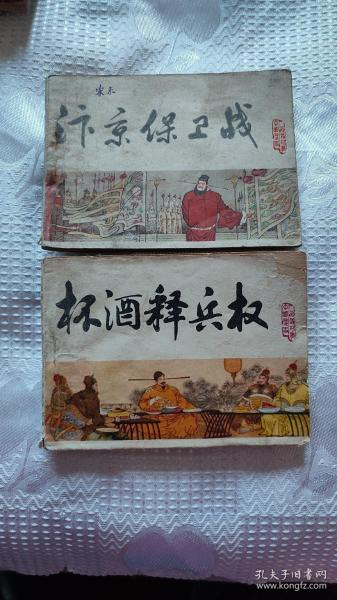 汴京保卫战
杯酒释兵权
孔夫子旧书网
www.kongfz.com